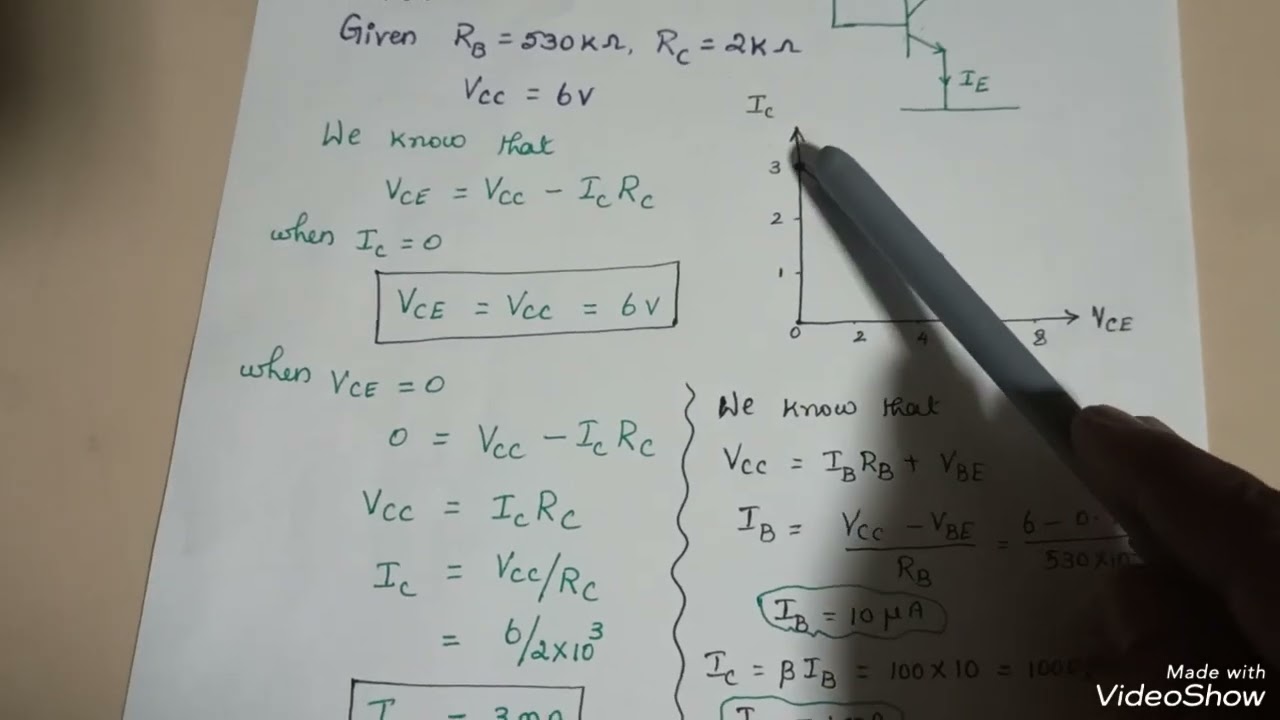 Given R_B = 530KΩ, R_C = 2KΩ
V_CC = 6V
We know that
V_CE = V_CC - I_C R_C
when I_C = 0
V_CE = V_CC = 6V
when V_CE = 0
0 = V_CC - I_C R_C
V_CC = I_C R_C
I_C = V_CC/R_C
= 6/2×10³
= 3mA
I_E
I_C
3
2
1
0 2 4 8 V_CE
We know that
V_CC = I_B R_B + V_BE
I_B = (V_CC - V_BE)/R_B = (6 - 0.)/(530×10
I_B = 10 μA
I_C = β I_B = 100 × 10 = 100
Made with
VideoShow